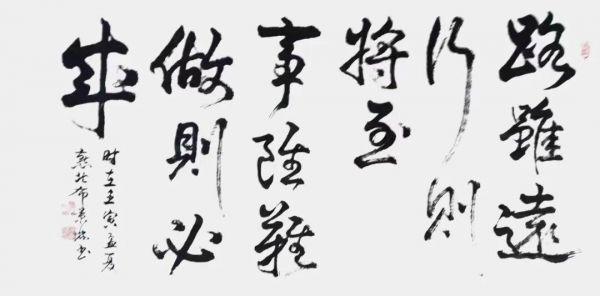 路雖遠
行則
將至
事雖難
做則必
成
时在壬寅孟夏
北布景书